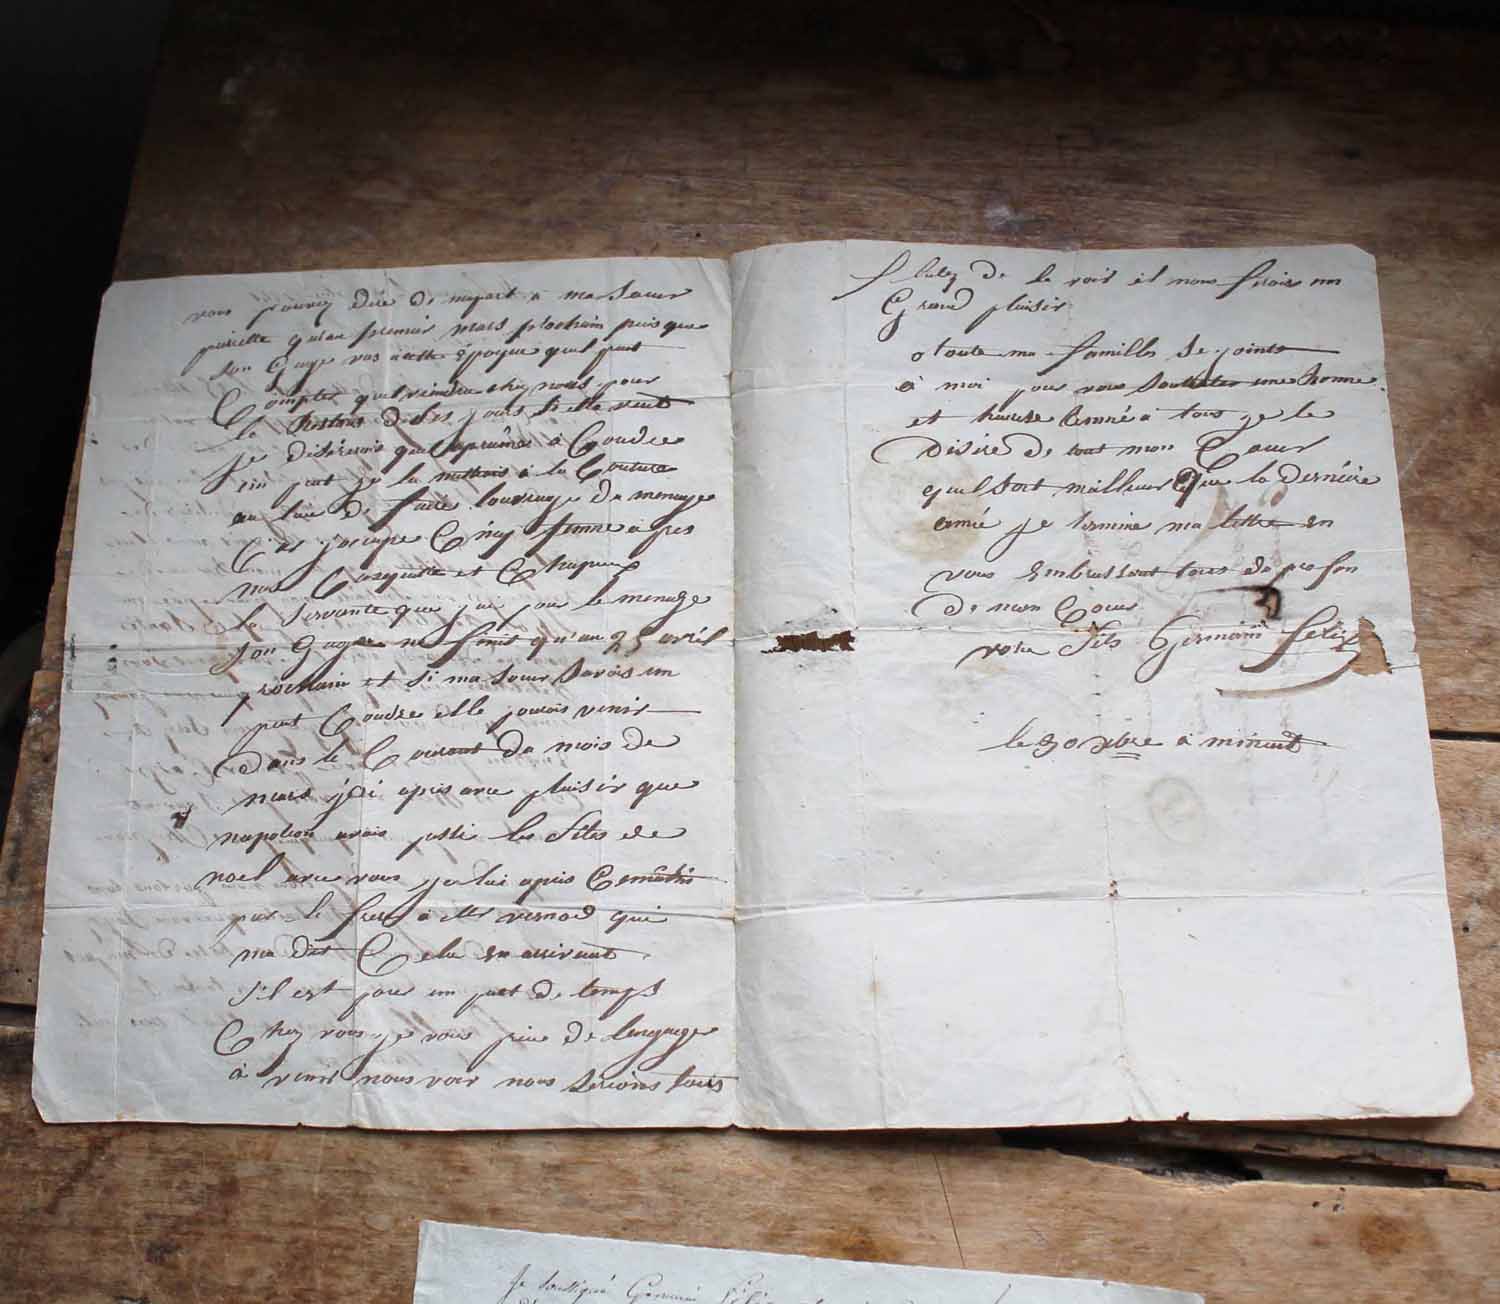 vous pouvez dire de mapart a ma Soeur
quau premier mars plochain puis que
Son Gage vas acette époque quel peut
Compter quel viendra chez nous pour
la Restant de Ses jours Si elle veut
je désirerais quel aprainne à Coudre
un peut je la mettrais à la Couture
au lieu de faire louvrage du menage
Car joccupe Cinq femme a fres
nos Casquette et Chapeux
la Servante que jai pour le menage
Son Gage ne finit qu'au 25 avril
prochain et Si ma Soeur Savais un
peut Coudre elle pouvais venir
Dans le Courant du mois de
mars j'ai apris avec plaisir que
napoleon avais passé les fêtes de
noel avec vous je lai apris Cematin
par le frere à Mr renod qui
ma dit Cela en arrivant
S'il est pour un peut de temps
Chez vous je vous prie de lengager
à venir nous voir nous Serions tous
de le voir il nous ferais un
Grand plaisir
toute ma famille Se joints
à moi pour vous Souhaiter une bonne
et heureuse année à tous je le
Désire de tout mon Coeur
quel Soit meilleur Que la Dernière
amié je termine ma lettre en
vous Embrassant tous du profon
De mon Coeur
votre fils Germain felix
le 30 Xbre a minuit
Je Soussigné Germain Félix